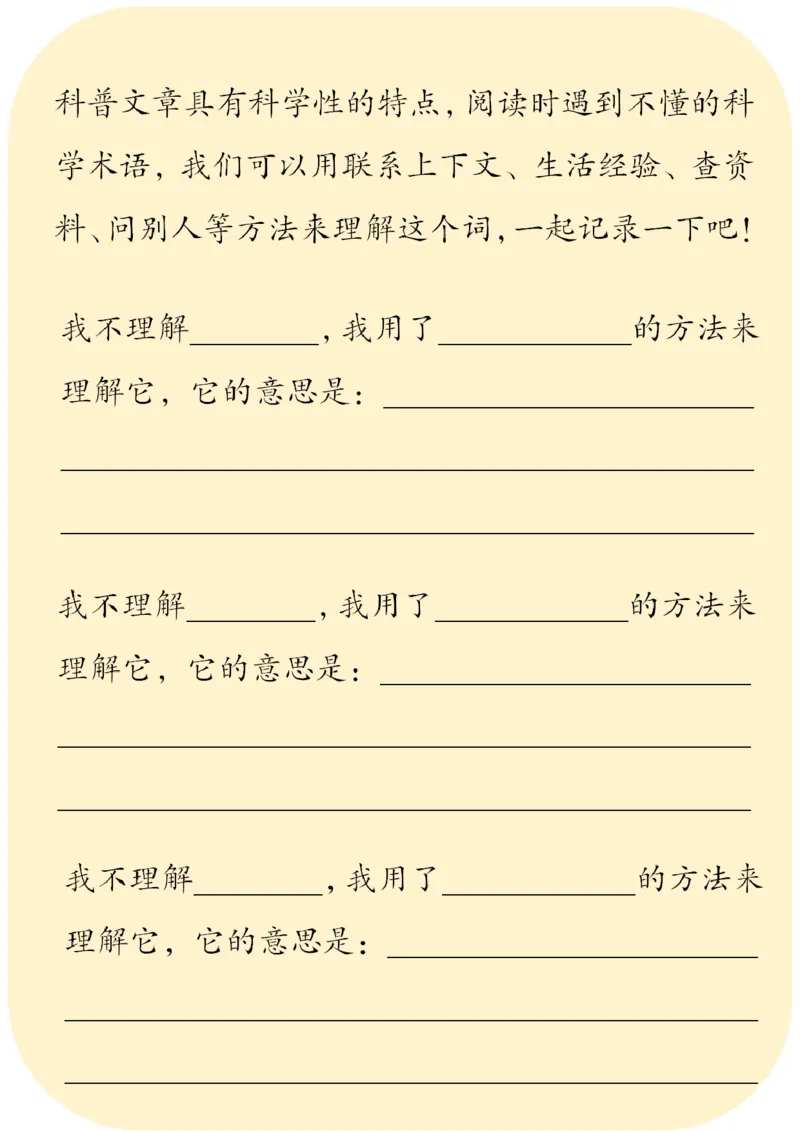 科普文章具有科学性的特点，阅读时遇到不懂的科
学术语，我们可以用联系上下文、生活经验、查资
料、问别人等方法来理解这个词，一起记录一下吧！
我不理解________，我用了____________的方法来
理解它，它的意思是：_______________________
___________________________________________
___________________________________________
我不理解________，我用了____________的方法来
理解它，它的意思是：_______________________
___________________________________________
___________________________________________
我不理解________，我用了____________的方法来
理解它，它的意思是：_______________________
___________________________________________
___________________________________________